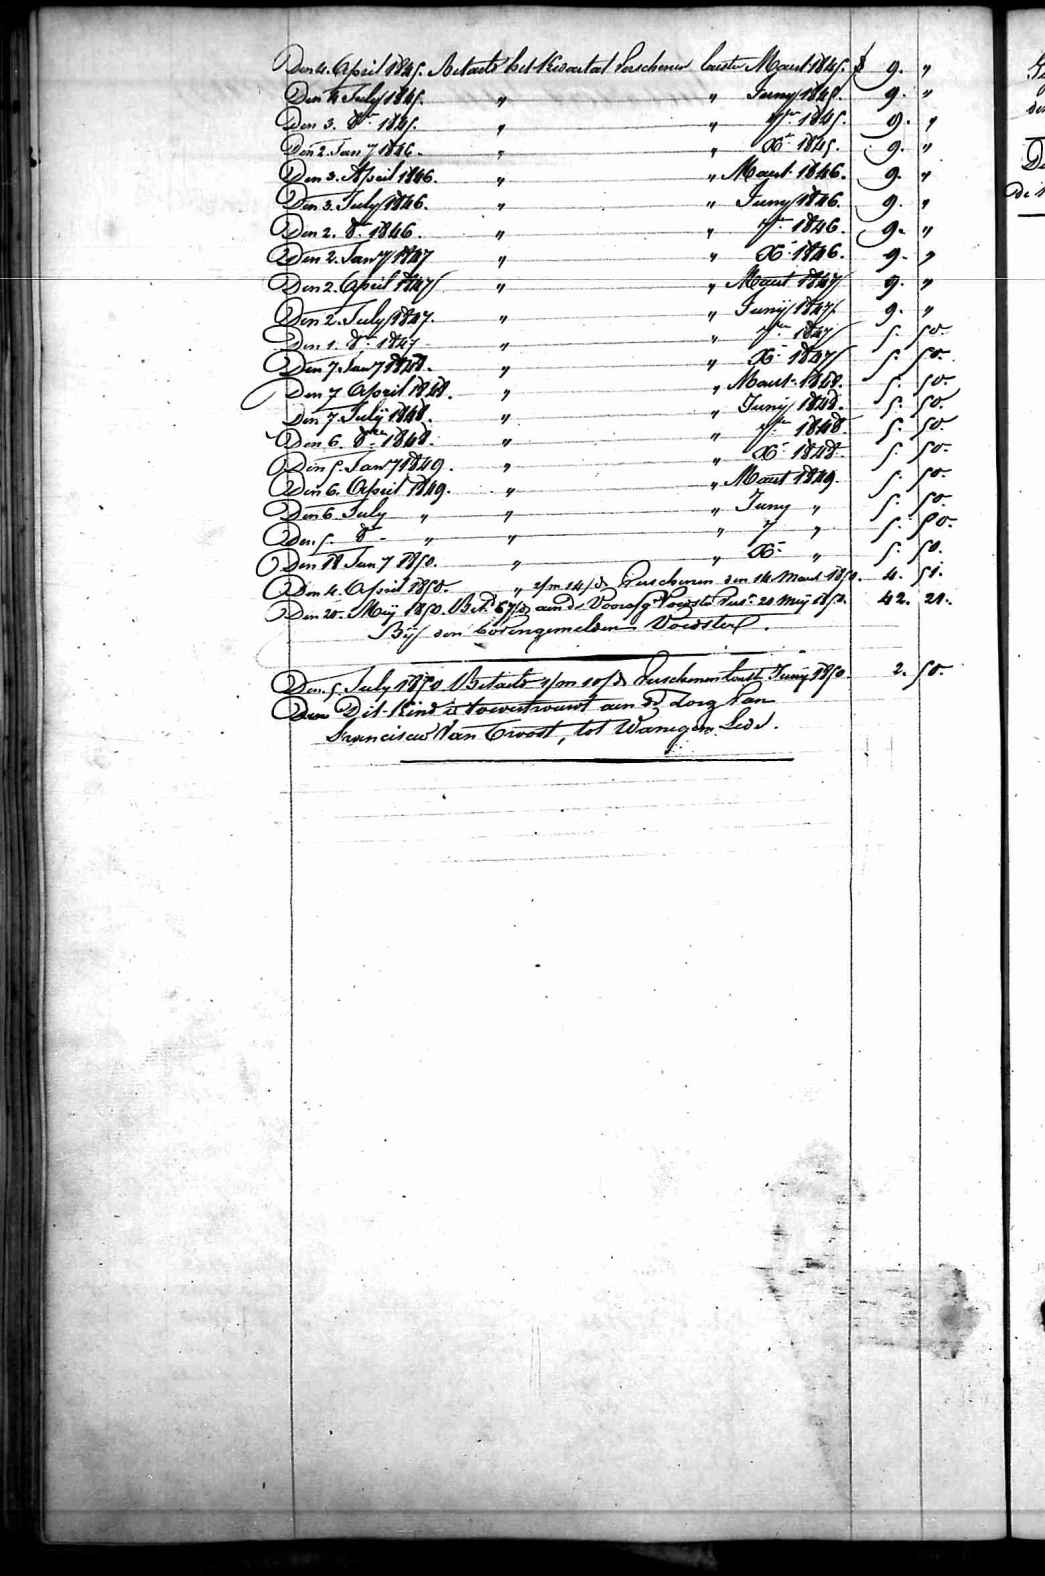 Den 4. April 1845. Betaelt het Kwartal verschenen laetsten Maert 1845. f 9. "
Den 4 July 1845. " " Juny 1845. 9. "
Den 3. 8er 1845. " " 7er 1845. 9. "
Den 2. Jany 1846. " " Xr 1845. 9. "
Den 3. April 1846. " " Maert 1846. 9. "
Den 3. July 1846. " " Juny 1846. 9. "
Den 2. 8er 1846. " " 7er 1846. 9. "
Den 2. Jany 1847 " " Xr 1846. 9. "
Den 2. April 1847 " " Maert 1847 9. "
Den 2. July 1847. " " Junij 1847. 9. "
Den 1. 8er 1847 " " 7er 1847 5. 50.
Den 7. Jany 1848. " " Xr 1847 5. 50.
Den 7 April 1848. " " Maert 1848. 5. 50.
Den 7. Julij 1848. " " Junij 1848. 5. 50.
Den 6. 8er 1848. " " 7er 1848. 5. 50.
Den 5. Jany 1849. " " Xr 1848. 5. 50.
Den 6. April 1849. " " Maert 1849. 5. 50.
Den 6. July " " " Juny " 5. 50.
Den 5. 8er " " " 7 " 5. 50.
Den 18 Jany 1850. " " Xr " 5. 50.
Den 4. April 1850. " 2/m 14/d verschenen den 14 Maert 1850. 4. 51.
Den 24. Meij 1850. Bet. 67/d aen d' Voorafg. Voedster vers. 20 Meij 1850. 42. 21.
Bij den bovengemelden Voedster.
Den 5. July 1850 Betaelt 1/m 10/d verschenen laetst Junij 1850. 2. 50.
Dit Kind is toevertrouwt aen de Zorg van
Franciscus Van Troost, tot Wanegem Lede.